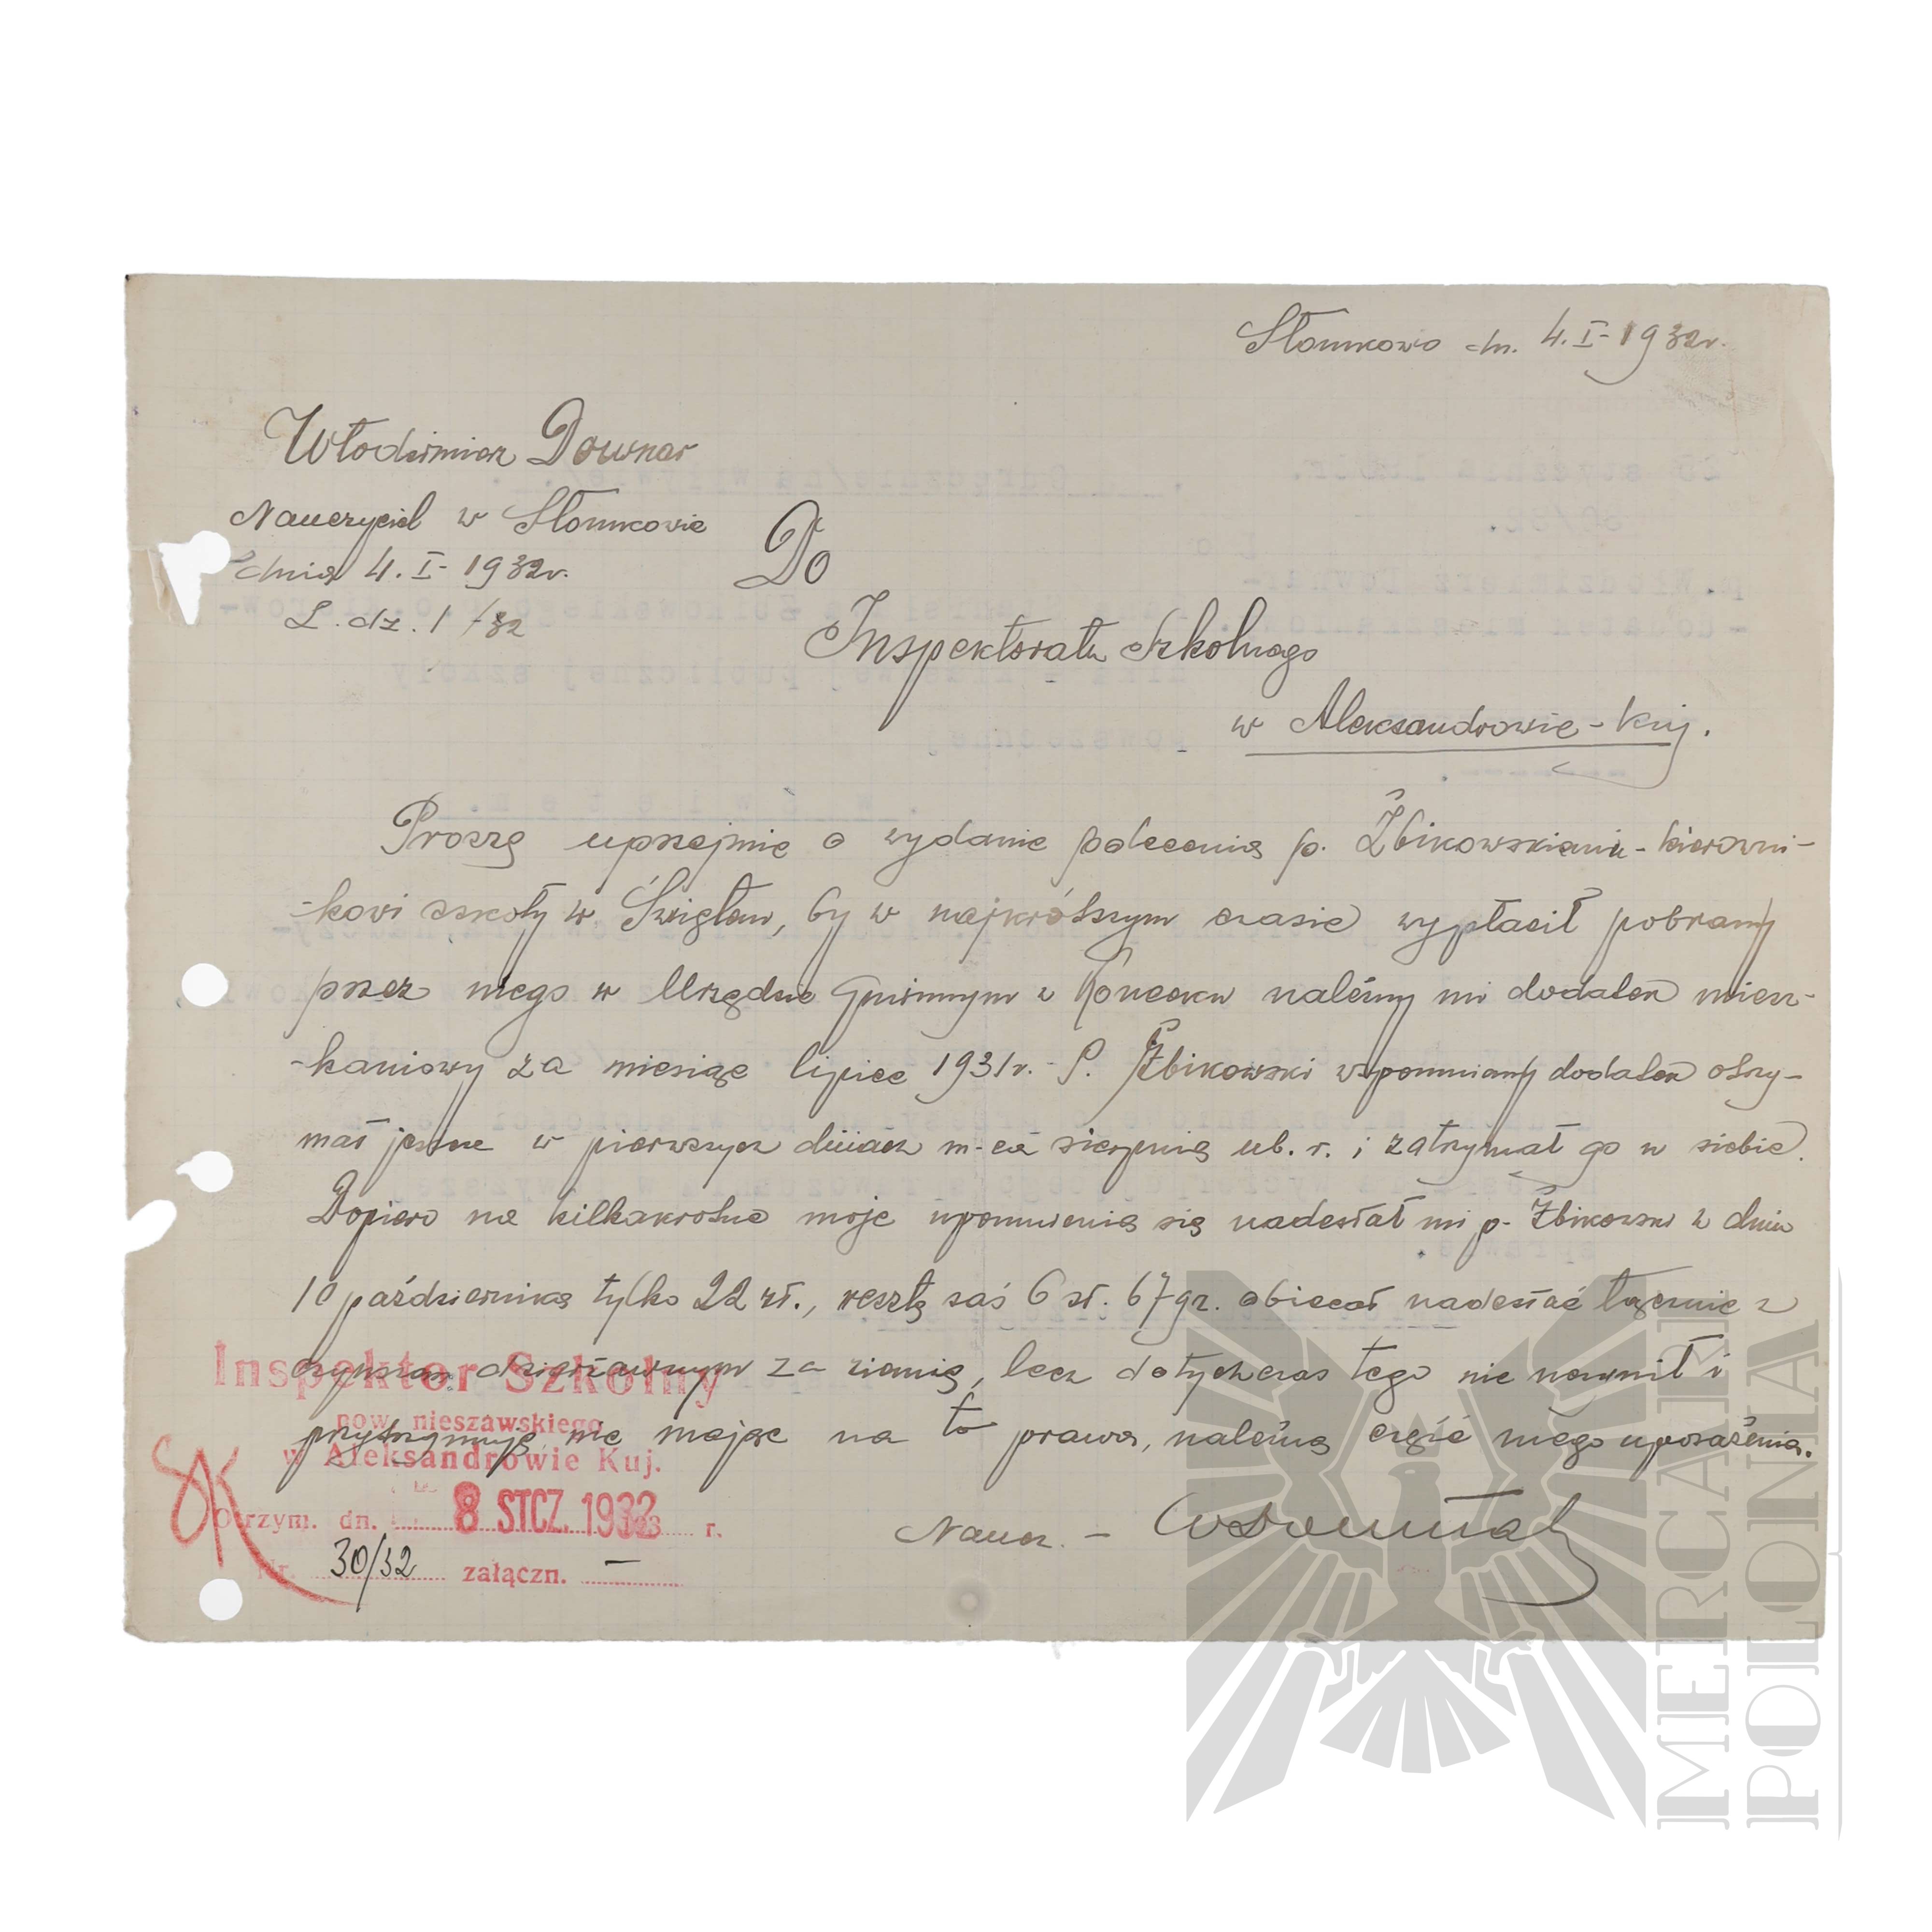 Słomkowo dn. 4.I-1932r.
Włodzimierz Downar
Nauczyciel w Słomkowie
dnia 4.I-1932r.
L.dz.1/32
Do
Inspektoratu Szkolnego
w Aleksandrowie-Kuj.
Proszę uprzejmie o wydanie polecenia p. Żbikowskiemu-kierowni-
-kowi szkoły w by w najkrótszym czasie wypłacił pobrany
przez niego w Urzędzie Gminnym w Konecku należny mi dodatek miesz-
-kaniowy za miesiąc lipiec 1931r.- P. Żbikowski wspomniany dodatek otrzy-
mał jeszcze w pierwszych dniach m-ca sierpnia ub. r. i zatrzymał go u siebie.
Dopiero na kilkakrotne moje upomnienia się nadesłał mi p. Żbikowski w dniu
10 października tylko 22 zł., resztę zaś 6 zł. 67 gr. obiecał nadesłać łącznie z
czynszem dzierżawnym za ziemię, lecz dotychczas tego nie uczynił i
przytrzymuje nie mając na to prawa, należną część mego uposażenia.
Naucz. -
Inspektor Szkolny
pow. nieszawskiego
w Aleksandrowie Kuj.
Otrzym. dn. 8 STCZ. 1932 r.
Nr. 30/32 załączn. —
MERCARI
POLONIA